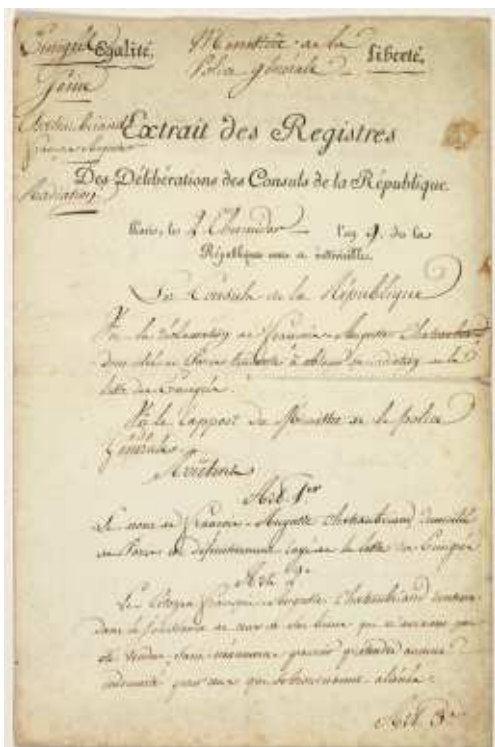 Emigrés
Egalité.
Ministère de la
Police générale
Liberté.
Seine
Chateaubriand
François Auguste
Radiation
Extrait des Registres
Des Délibérations des Consuls de la République.
Paris, le 2 Thermidor l'an 9. de la
République une et indivisible.
Les Consuls de la République
Vu la réclamation de François-Auguste Chateaubriand
domicilié à Paris tendante à obtenir sa radiation de la
liste des Emigrés.
Vu le rapport du Ministre de la police
Générale.
Arrêtent
Art. 1er
Le nom de François-Auguste Chateaubriand domicilié
à Paris est définitivement rayé de la liste des Emigrés
Art. 2e
Le Citoyen François-Auguste Chateaubriand rentrera
dans la jouissance de ceux de ses biens qui n'auront pas
été vendus, sans néanmoins pouvoir prétendre aucune
indemnité pour ceux qui se trouveraient aliénés.
Art. 3e